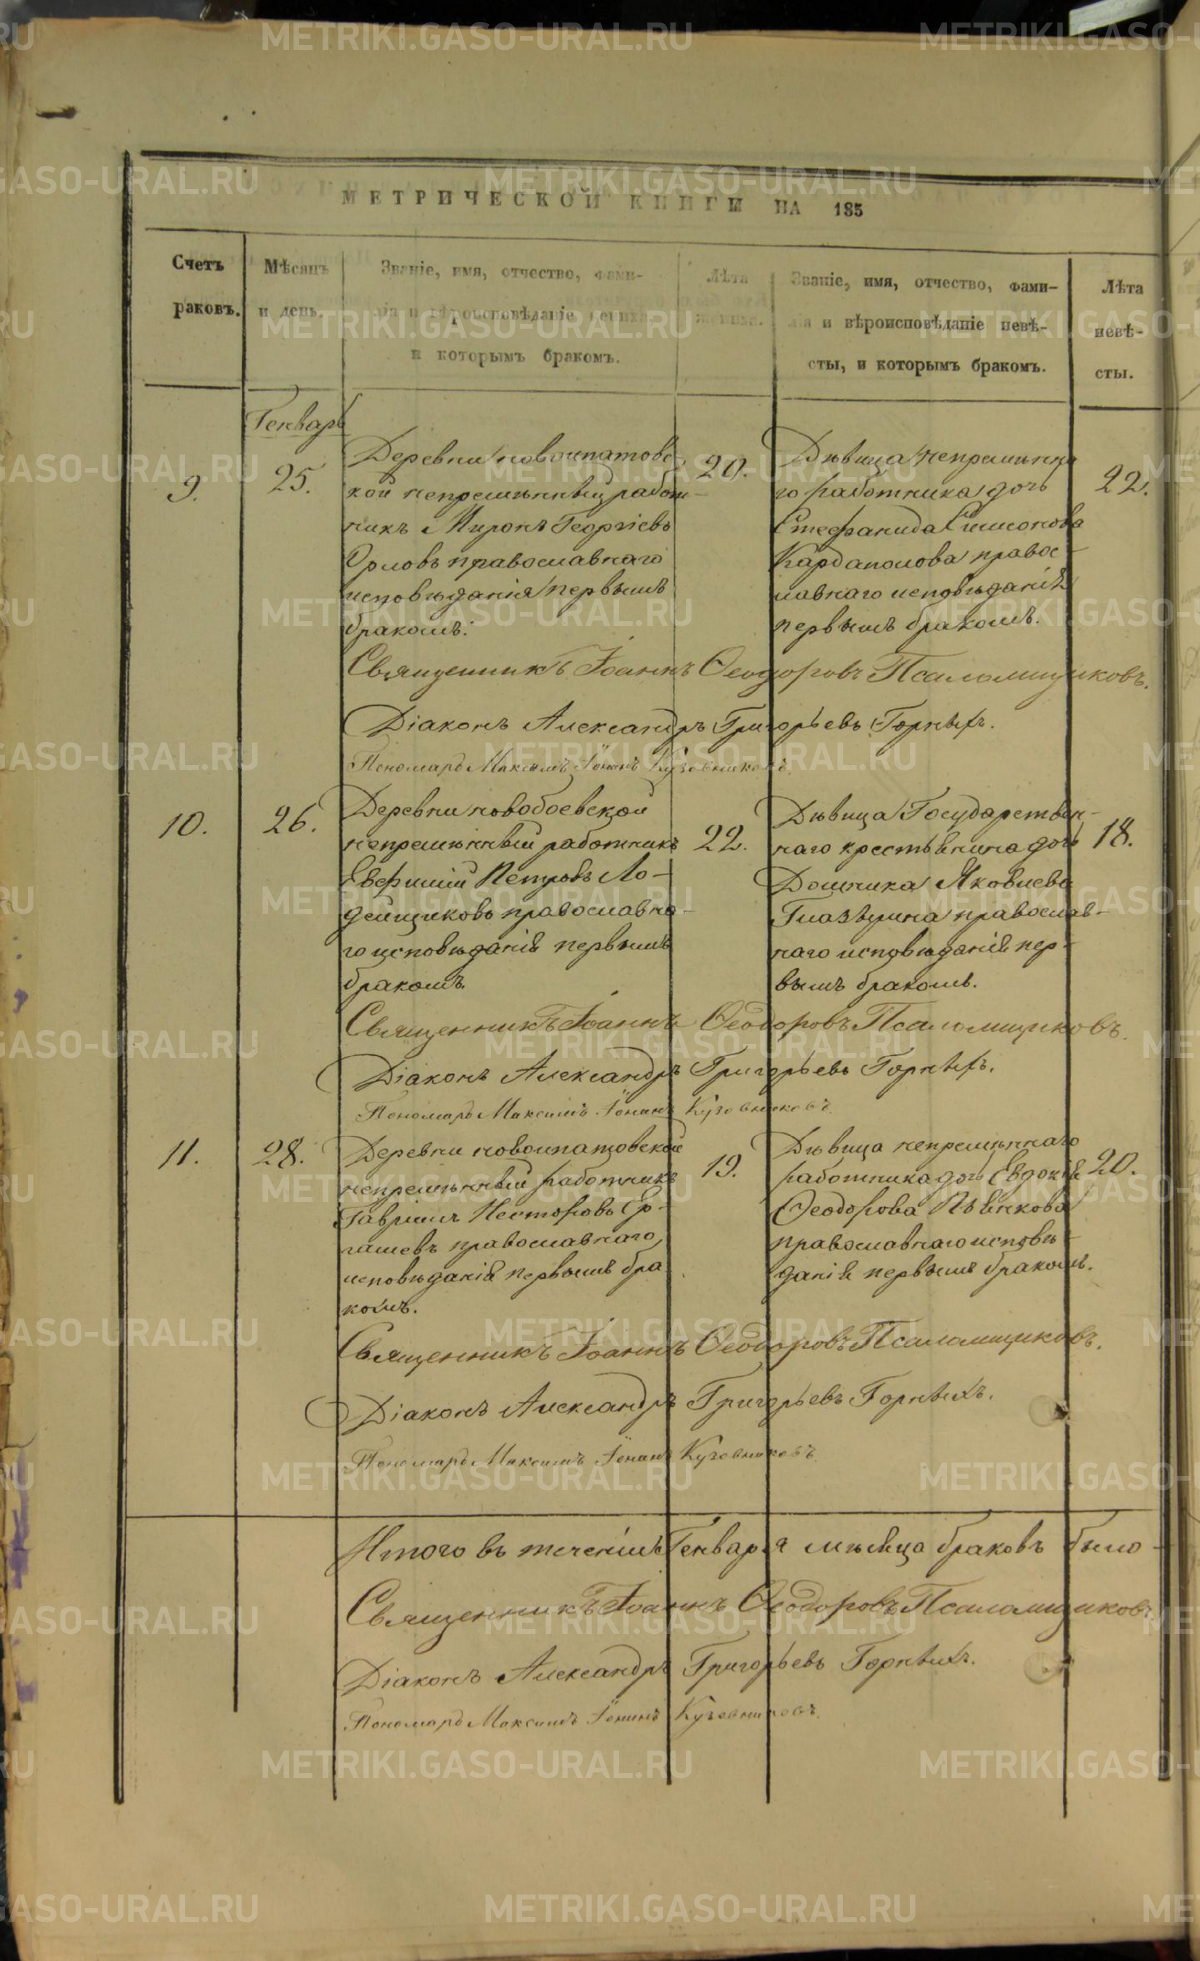 МЕТРИЧЕСКОЙ КНИГИ НА 185
Счетъ
раковъ.
Мѣсяцъ
и день.
Званіе, имя, отчество, фами-
лія и вѣроисповѣданіе жениха
и которымъ бракомъ.
Лѣта
жениха.
Званіе, имя, отчество, фами-
лія и вѣроисповѣданіе невѣ-
сты, и которымъ бракомъ.
Лѣта
невѣ-
сты.
Генварь
9.
25.
Деревни новоипатовс
кой непремѣнный работ-
никъ Миронъ Георгіевъ
Орловъ православнаго
исповѣданія первымъ
бракомъ.
20.
Дѣвица непремѣнна
го работника дочь
Стефанида Симонова
Кардаполова правос-
лавнаго исповѣданія
первымъ бракомъ.
22.
Священникъ Іоаннъ Ѳеодоровъ Псаломщиковъ.
Діаконъ Александръ Григорьевъ Горныхъ.
Пономарь Максимъ
10.
26.
Деревни новобоевской
непремѣнный работникъ
Евфимій Петровъ Ло-
дейщиковъ православна-
го исповѣданія первымъ
бракомъ
22.
Дѣвица Государствен-
наго крестьянина дочь
Домника Яковлева
Глазырина православ-
наго исповѣданія пер-
вымъ бракомъ.
18.
Священникъ Іоаннъ Ѳеодоровъ Псаломщиковъ.
Діаконъ Александръ Григорьевъ Горныхъ.
Пономарь Максимъ
11.
28.
Деревни новоипатовской
непремѣнный работникъ
Гавриилъ Несторовъ Ер-
лашевъ православнаго
исповѣданія первымъ бра
комъ.
19.
Дѣвица непремѣннаго
работника дочь Евдокія
Ѳеодорова Пьянкова
православнаго исповѣ-
данія первымъ бракомъ.
20.
Священникъ Іоаннъ Ѳеодоровъ Псаломщиковъ.
Діаконъ Александръ Григорьевъ Горныхъ.
Пономарь Максимъ
Итого въ теченіи Генваря мѣсяца браковъ было-
Священникъ Іоаннъ Ѳеодоровъ Псаломщиковъ.
Діаконъ Александръ Григорьевъ Горныхъ.
Пономарь Максимъ
METRIKI.GASO-URAL.RU